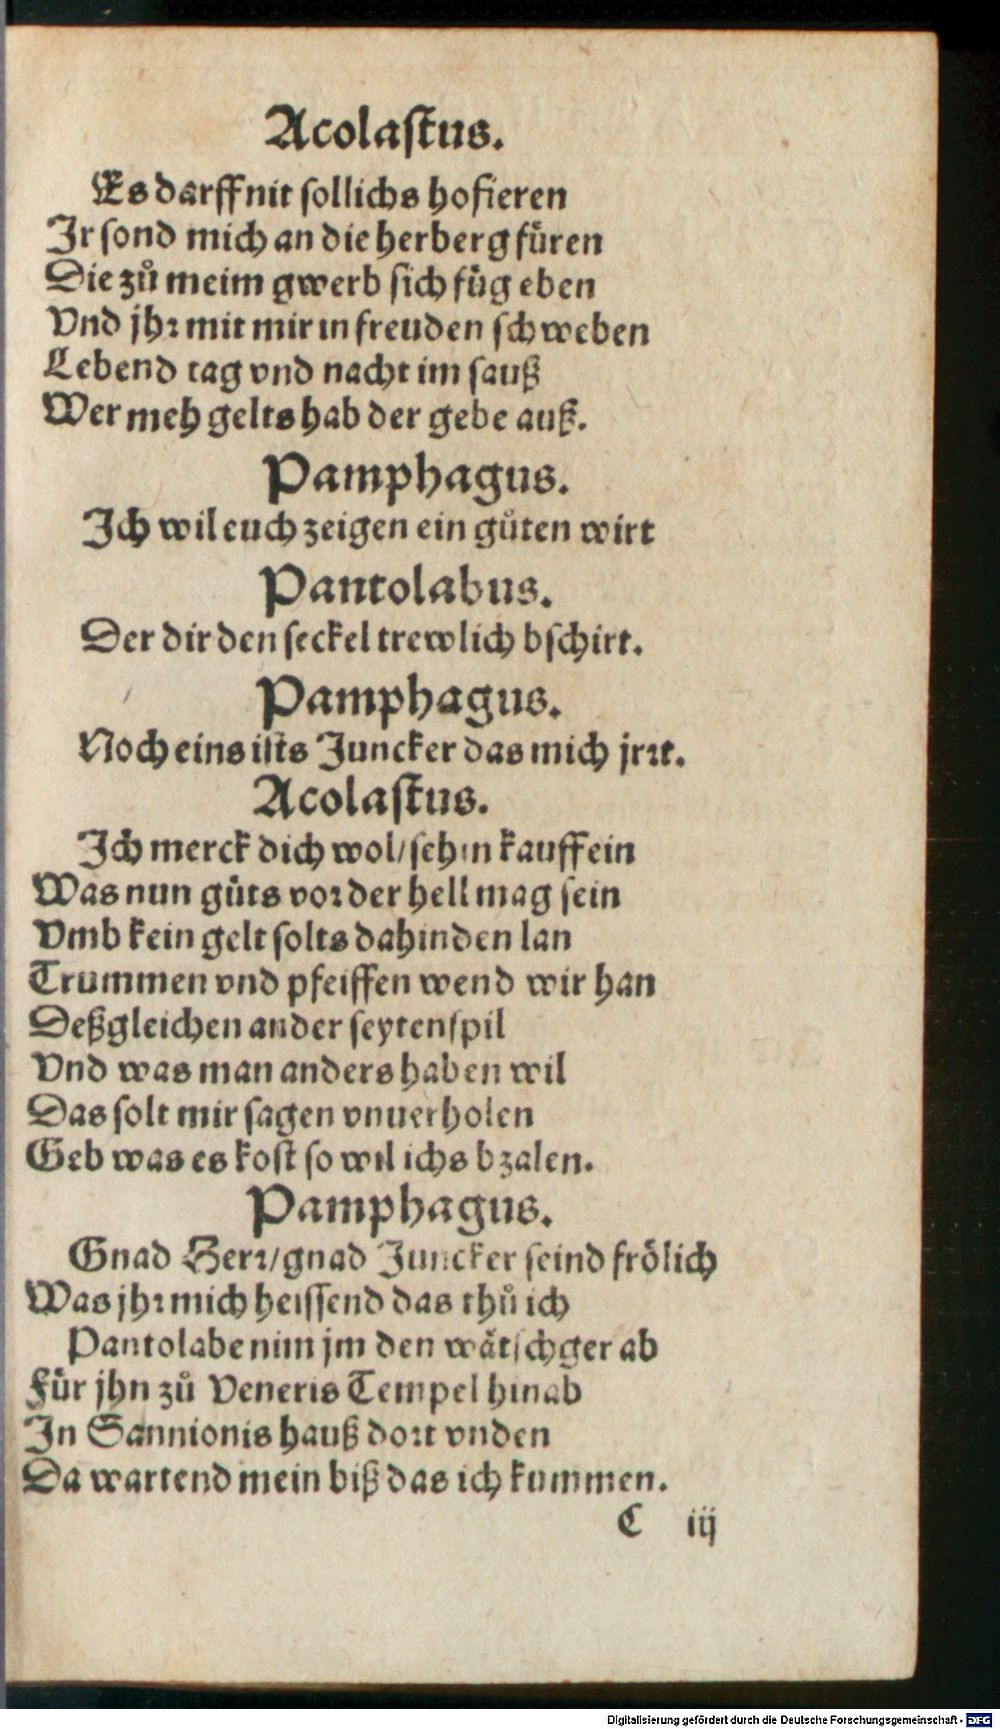 Acolastus.
Es darff nit sollichs hofieren
Ir sond mich an die herberg füren
Die zů meim gwerb sich füg eben
Vnd jhr mit mir in freuden schweben
Lebend tag vnd nacht im sauß
Wer meh gelts hab der gebe auß.
Pamphagus.
Ich wil euch zeigen ein gůten wirt
Pantolabus.
Der dir den seckel trewlich bschirt.
Pamphagus.
Noch eins ists Juncker das mich jrrt.
Acolastus.
Ich merck dich wol/ sehin kauff ein
Was nun gůts vor der hell mag sein
Vmb kein gelt solts dahinden lan
Trummen vnd pfeiffen wend wir han
Deßgleichen ander seytenspil
Vnd was man anders haben wil
Das solt mir sagen vnuerholen
Geb was es kost so wil ichs bzalen.
Pamphagus.
Gnad Herr/ gnad Juncker seind frölich
Was jhr mich heissend das thů ich
Pantolabe nim jm den wätschger ab
Für jhn zů Veneris Tempel hinab
In Sannionis hauß dort vnden
Da wartend mein biß das ich kummen.
C iij
Digitalisierung gefördert durch die Deutsche Forschungsgemeinschaft - DFG